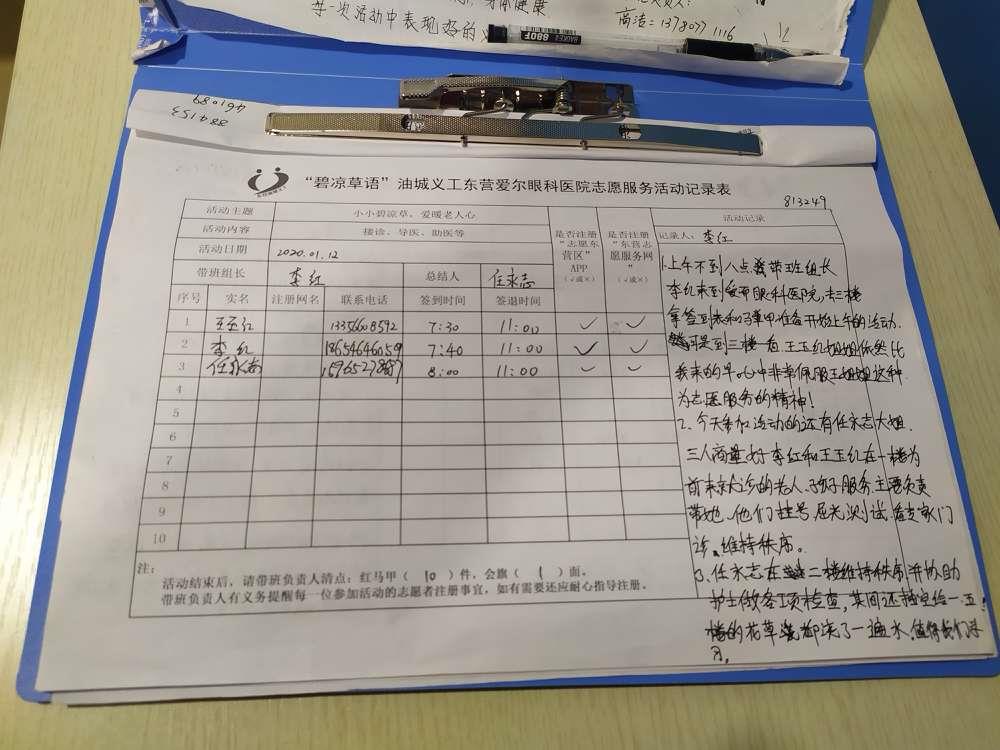 每一次活动中表现好的
商洁:1378077 1116
BAOKE 880F
461089
884153
“碧凉草语”油城义工东营爱尔眼科医院志愿服务活动记录表
813249
活动主题 小小碧凉草、爱暖老人心
活动内容 接诊、导医、助医等
活动日期 2020.01.12
带班组长 李红 总结人 任永志
是否注册“志愿东营区”APP(√或×)
是否注册“东营志愿服务网”(√或×)
活动记录
记录人:李红
序号 实名 注册网名 联系电话 签到时间 签退时间
1 王玉红 13356608592 7:30 11:00 ✓ ✓
2 李红 18654646059 7:40 11:00 ✓ ✓
3 任永志 8:00 11:00 ✓ ✓
4
5
6
7
8
9
10
注:
活动结束后,请带班负责人清点:红马甲(10)件,会旗(1)面。
带班负责人有义务提醒每一位参加活动的志愿者注册事宜,如有需要还应耐心指导注册。
1.上午不到八点,我带班组长
李红来到爱尔眼科医院,去三楼
拿签到表和马甲准备开始上午的运动.
可是到三楼一看王玉红姐姐依然比
我来的早,心中非常佩服王姐姐这种
为志愿服务的精神!
2、今天参加活动的还有任永志大姐.
三人商量好李红和王玉红在一楼为
前来就诊的老人、孩子服务主要负责
带她、他们挂号、屈光测试、看专家门
诊、维持秩序。
3、任永志在二楼维持秩序,并协助
护士做各项检查,其间还给一、五
楼的花草都浇了一遍水,值得我们学
习。